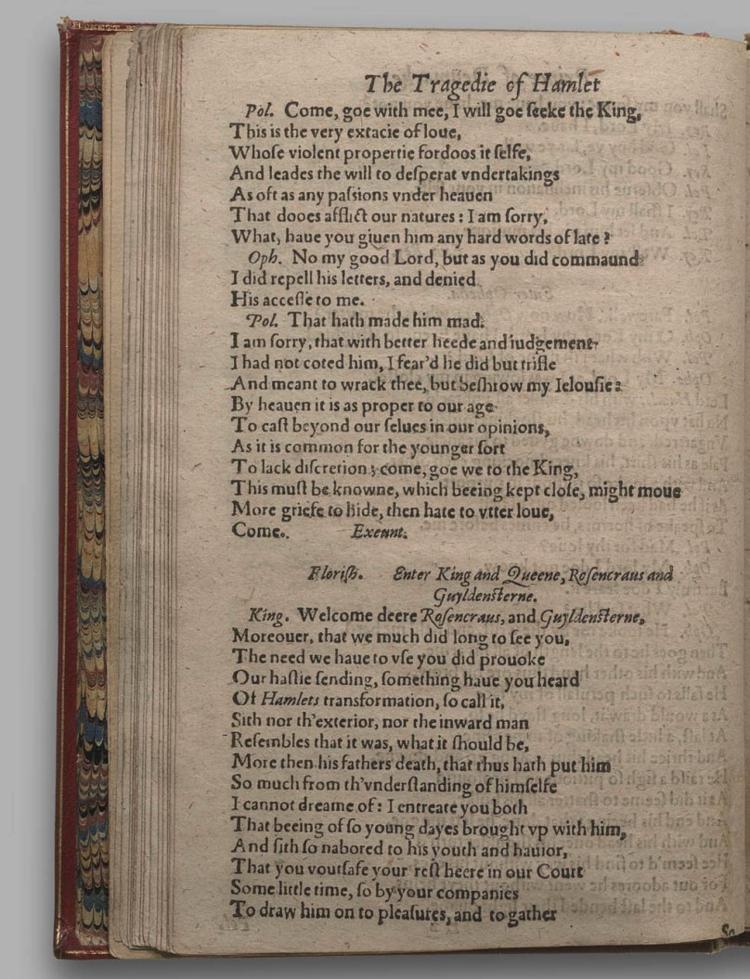 The Tragedie of Hamlet
Pol. Come, goe with mee, I will goe ſeeke the King,
This is the very extacie of loue,
Whoſe violent propertie fordoos it ſelfe,
And leades the will to deſperat vndertakings
As oft as any paſsions vnder heauen
That dooes afflict our natures : I am ſorry,
What, haue you giuen him any hard words of late ?
Oph. No my good Lord, but as you did commaund
I did repell his letters, and denied
His acceſſe to me.
Pol. That hath made him mad.
I am ſorry, that with better heede and iudgement
I had not coted him, I fear'd he did but trifle
And meant to wrack thee, but beſhrow my Ielouſie :
By heauen it is as proper to our age
To caſt beyond our ſelues in our opinions,
As it is common for the younger ſort
To lack diſcretion ; come, goe we to the King,
This muſt be knowne, which beeing kept cloſe, might moue
More griefe to hide, then hate to vtter loue,
Come. Exeunt.
Floriſh. Enter King and Queene, Roſencraus and
Guyldenſterne.
King. Welcome deere Roſencraus, and Guyldenſterne,
Moreouer, that we much did long to ſee you,
The need we haue to vſe you did prouoke
Our haſtie ſending, ſomething haue you heard
Of Hamlets transformation, ſo call it,
Sith nor th'exterior, nor the inward man
Reſembles that it was, what it ſhould be,
More then his fathers death, that thus hath put him
So much from th'vnderſtanding of himſelfe
I cannot dreame of : I entreate you both
That beeing of ſo young dayes brought vp with him,
And ſith ſo nabored to his youth and hauior,
That you voutſafe your reſt heere in our Court
Some little time, ſo by your companies
To draw him on to pleaſures, and to gather